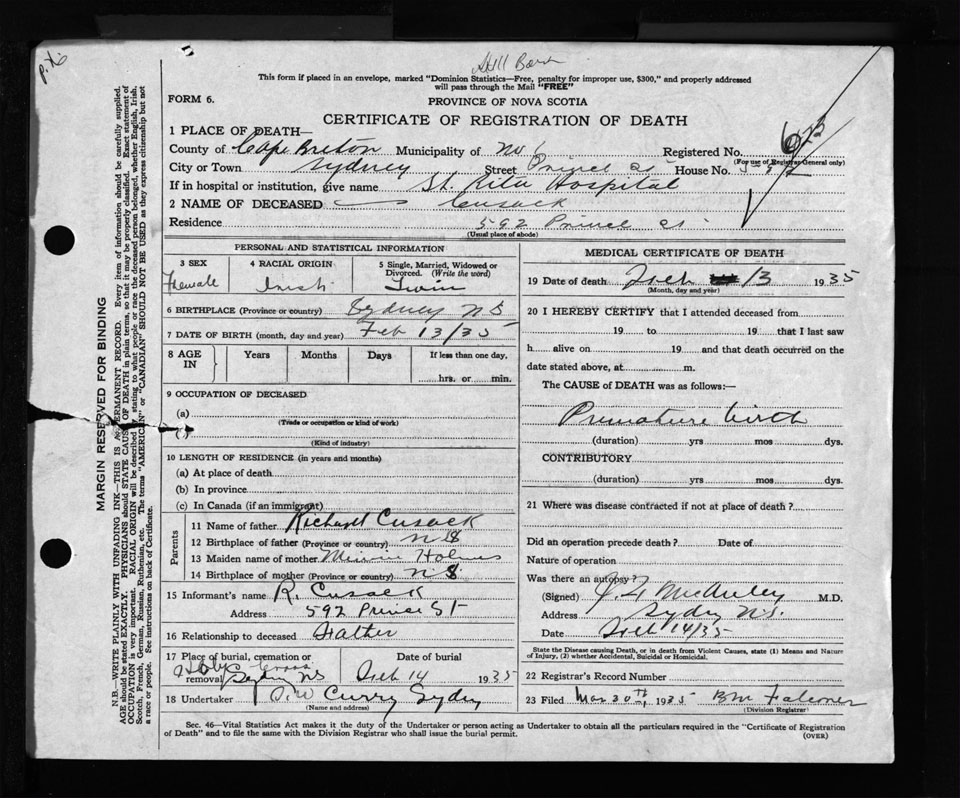 Still Born
This form if placed in an envelope, marked "Dominion Statistics—Free, penalty for improper use, $300," and properly addressed
will pass through the Mail "FREE"
FORM 6.
PROVINCE OF NOVA SCOTIA
CERTIFICATE OF REGISTRATION OF DEATH
1 PLACE OF DEATH—
County of Cape Breton Municipality of Registered No.
(For use of Registrar General only)
City or Town Sydney Street Prince St House No.
If in hospital or institution, give name St. Rita Hospital
2 NAME OF DECEASED Cusack
Residence 592 Prince St
(Usual place of abode)
PERSONAL AND STATISTICAL INFORMATION
3 SEX Female
4 RACIAL ORIGIN Irish
5 Single, Married, Widowed or Divorced. (Write the word) Twin
6 BIRTHPLACE (Province or country) Sydney NS
7 DATE OF BIRTH (month, day and year) Feb 13/35
8 AGE IN Years Months Days If less than one day, ......hrs. or......min.
9 OCCUPATION OF DECEASED
(a)
(Trade or occupation or kind of work)
(Kind of industry)
10 LENGTH OF RESIDENCE (in years and months)
(a) At place of death
(b) In province
(c) In Canada (if an immigrant)
Parents
11 Name of father Richard Cusack
12 Birthplace of father (Province or country) NS
13 Maiden name of mother Minnie Holmes
14 Birthplace of mother (Province or country) NS
15 Informant's name R. Cusack
Address 592 Prince St
16 Relationship to deceased Father
17 Place of burial, cremation or removal Holy Cross Sydney NS
Date of burial Feb 14 1935
18 Undertaker Curry Sydney
(Name and address)
MEDICAL CERTIFICATE OF DEATH
19 Date of death Feb 13 1935
(Month, day and year)
20 I HEREBY CERTIFY that I attended deceased from
19 to 19 that I last saw
h alive on 19 and that death occurred on the
date stated above, at m.
The CAUSE of DEATH was as follows:—
Premature birth
(duration) yrs mos dys.
CONTRIBUTORY
(duration) yrs mos dys.
21 Where was disease contracted if not at place of death?
Did an operation precede death? Date of
Nature of operation
Was there an autopsy?
(Signed) M.D.
Address Sydney NS.
Date Feb 14/35
State the Disease causing Death, or in death from Violent Causes, state (1) Means and Nature
of Injury, (2) whether Accidental, Suicidal or Homicidal.
22 Registrar's Record Number
23 Filed Mar 30th, 1935 Falconer
(Division Registrar)
Sec. 46—Vital Statistics Act makes it the duty of the Undertaker or person acting as Undertaker to obtain all the particulars required in the "Certificate of Registration
of Death" and to file the same with the Division Registrar who shall issue the burial permit.
(OVER)
MARGIN RESERVED FOR BINDING
N.B.—WRITE PLAINLY WITH UNFADING INK—THIS IS PERMANENT RECORD. Every item of information should be carefully supplied.
AGE should be stated EXACTLY. PHYSICIANS should STATE CAUSE OF DEATH in plain terms, so that it may be properly classified. Exact statement of
OCCUPATION is very important. RACIAL ORIGIN will be described by stating to what people or race the deceased person belonged, whether English, Irish,
Scotch, French, German, Russian, Ruthenian, etc. The terms "AMERICAN" or "CANADIAN" SHOULD NOT BE USED as they express citizenship but not
a race or people. See instructions on back of Certificate.